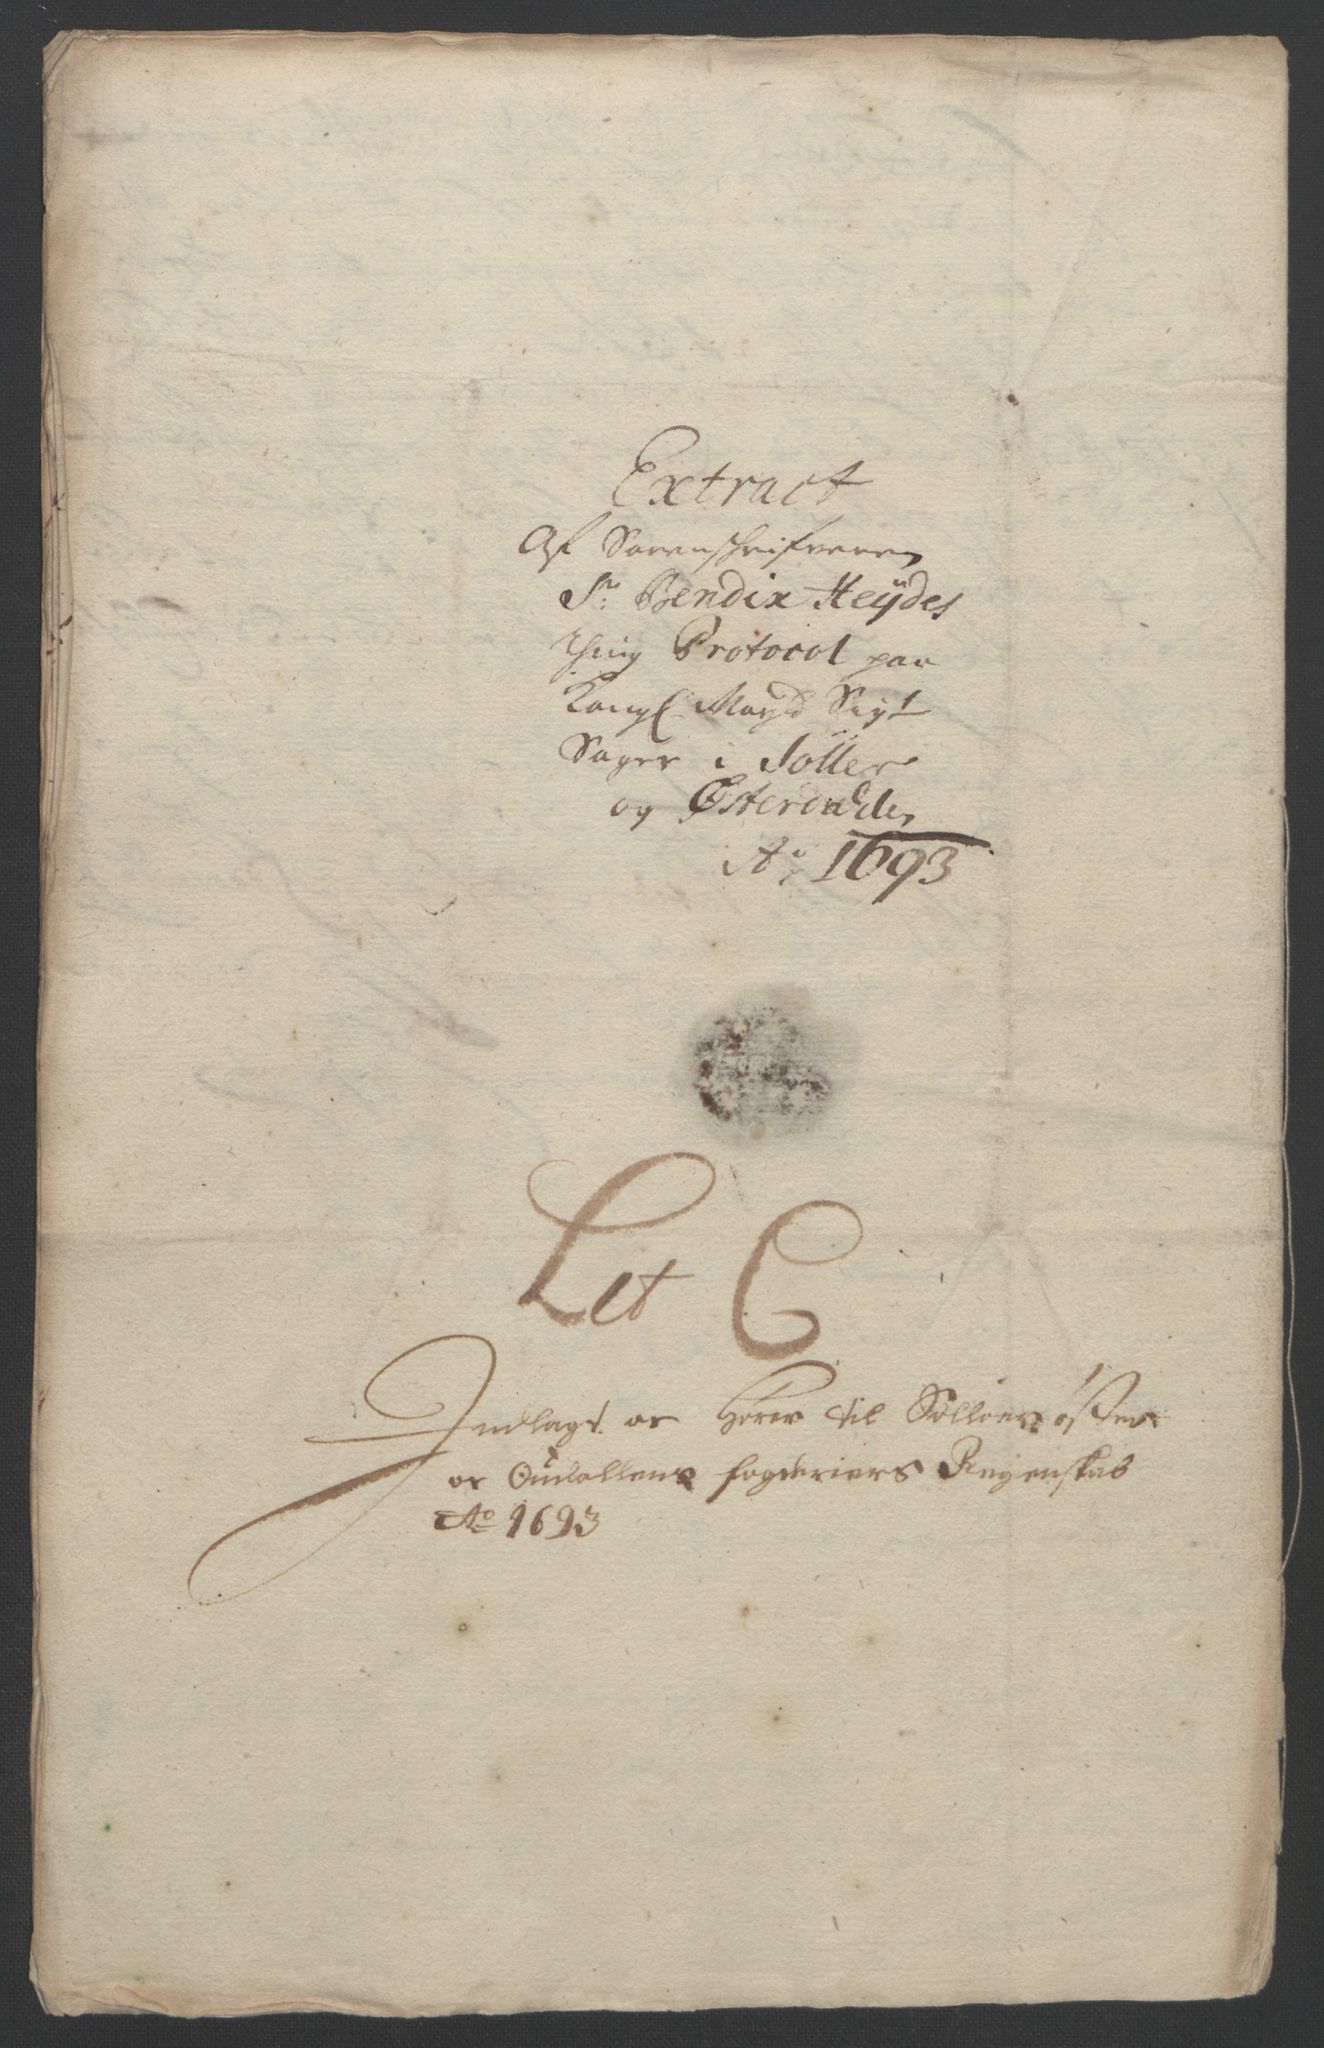 Extract
Af Sorenschrifveren
Sr: Bendix Heÿdes
Thing Protocol paa
Kongl Mayts Sigt
Sager i Soller
og Østerdahlen
Ao: 1693
Let C
Indlagt og Hører til Solloer Øster
og Oudallens fogderiers Regenskab
Ao 1693